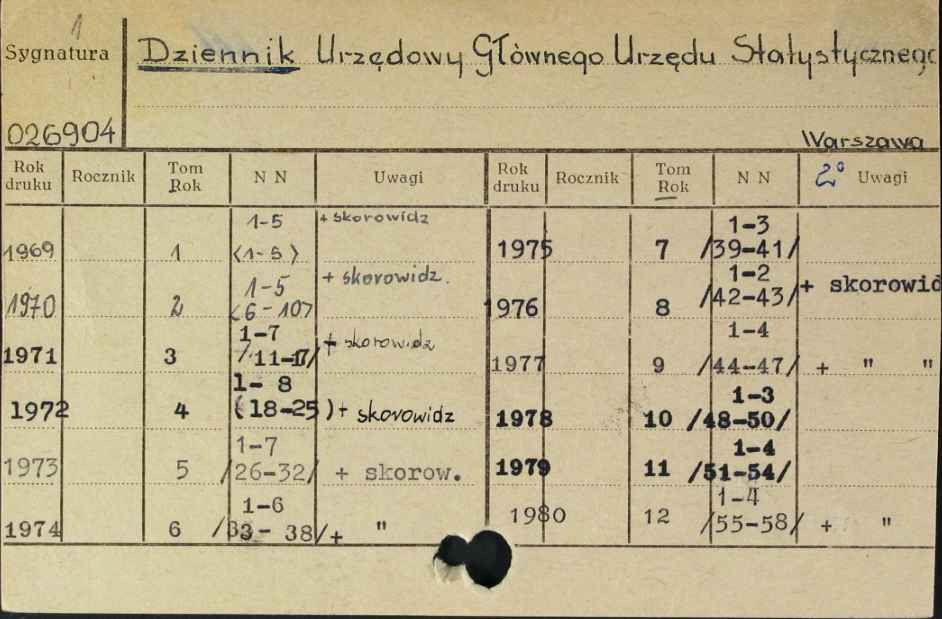 1
Sygnatura
Dziennik Urzędowy Głównego Urzędu Statystycznego
026904
Warszawa
Rok druku Rocznik Tom Rok N N Uwagi Rok druku Rocznik Tom Rok N N 2° Uwagi
1-5 + skorowidz 1-3
1969 1 (1-5) 1975 7 /39-41/
1-5 + skorowidz. 1-2 + skorowid
1970 2 (6-10) 1976 8 /42-43/
1-7 + skorowidz 1-4
1971 3 /11-17/ 1977 9 /44-47/ + " "
1- 8 1-3
1972 4 (18-25) + skorowidz 1978 10 /48-50/
1-7 1-4
1973 5 /26-32/ + skorow. 1979 11 /51-54/
1-6 1-4
1974 6 /33- 38/ + " 1980 12 /55-58/ + "